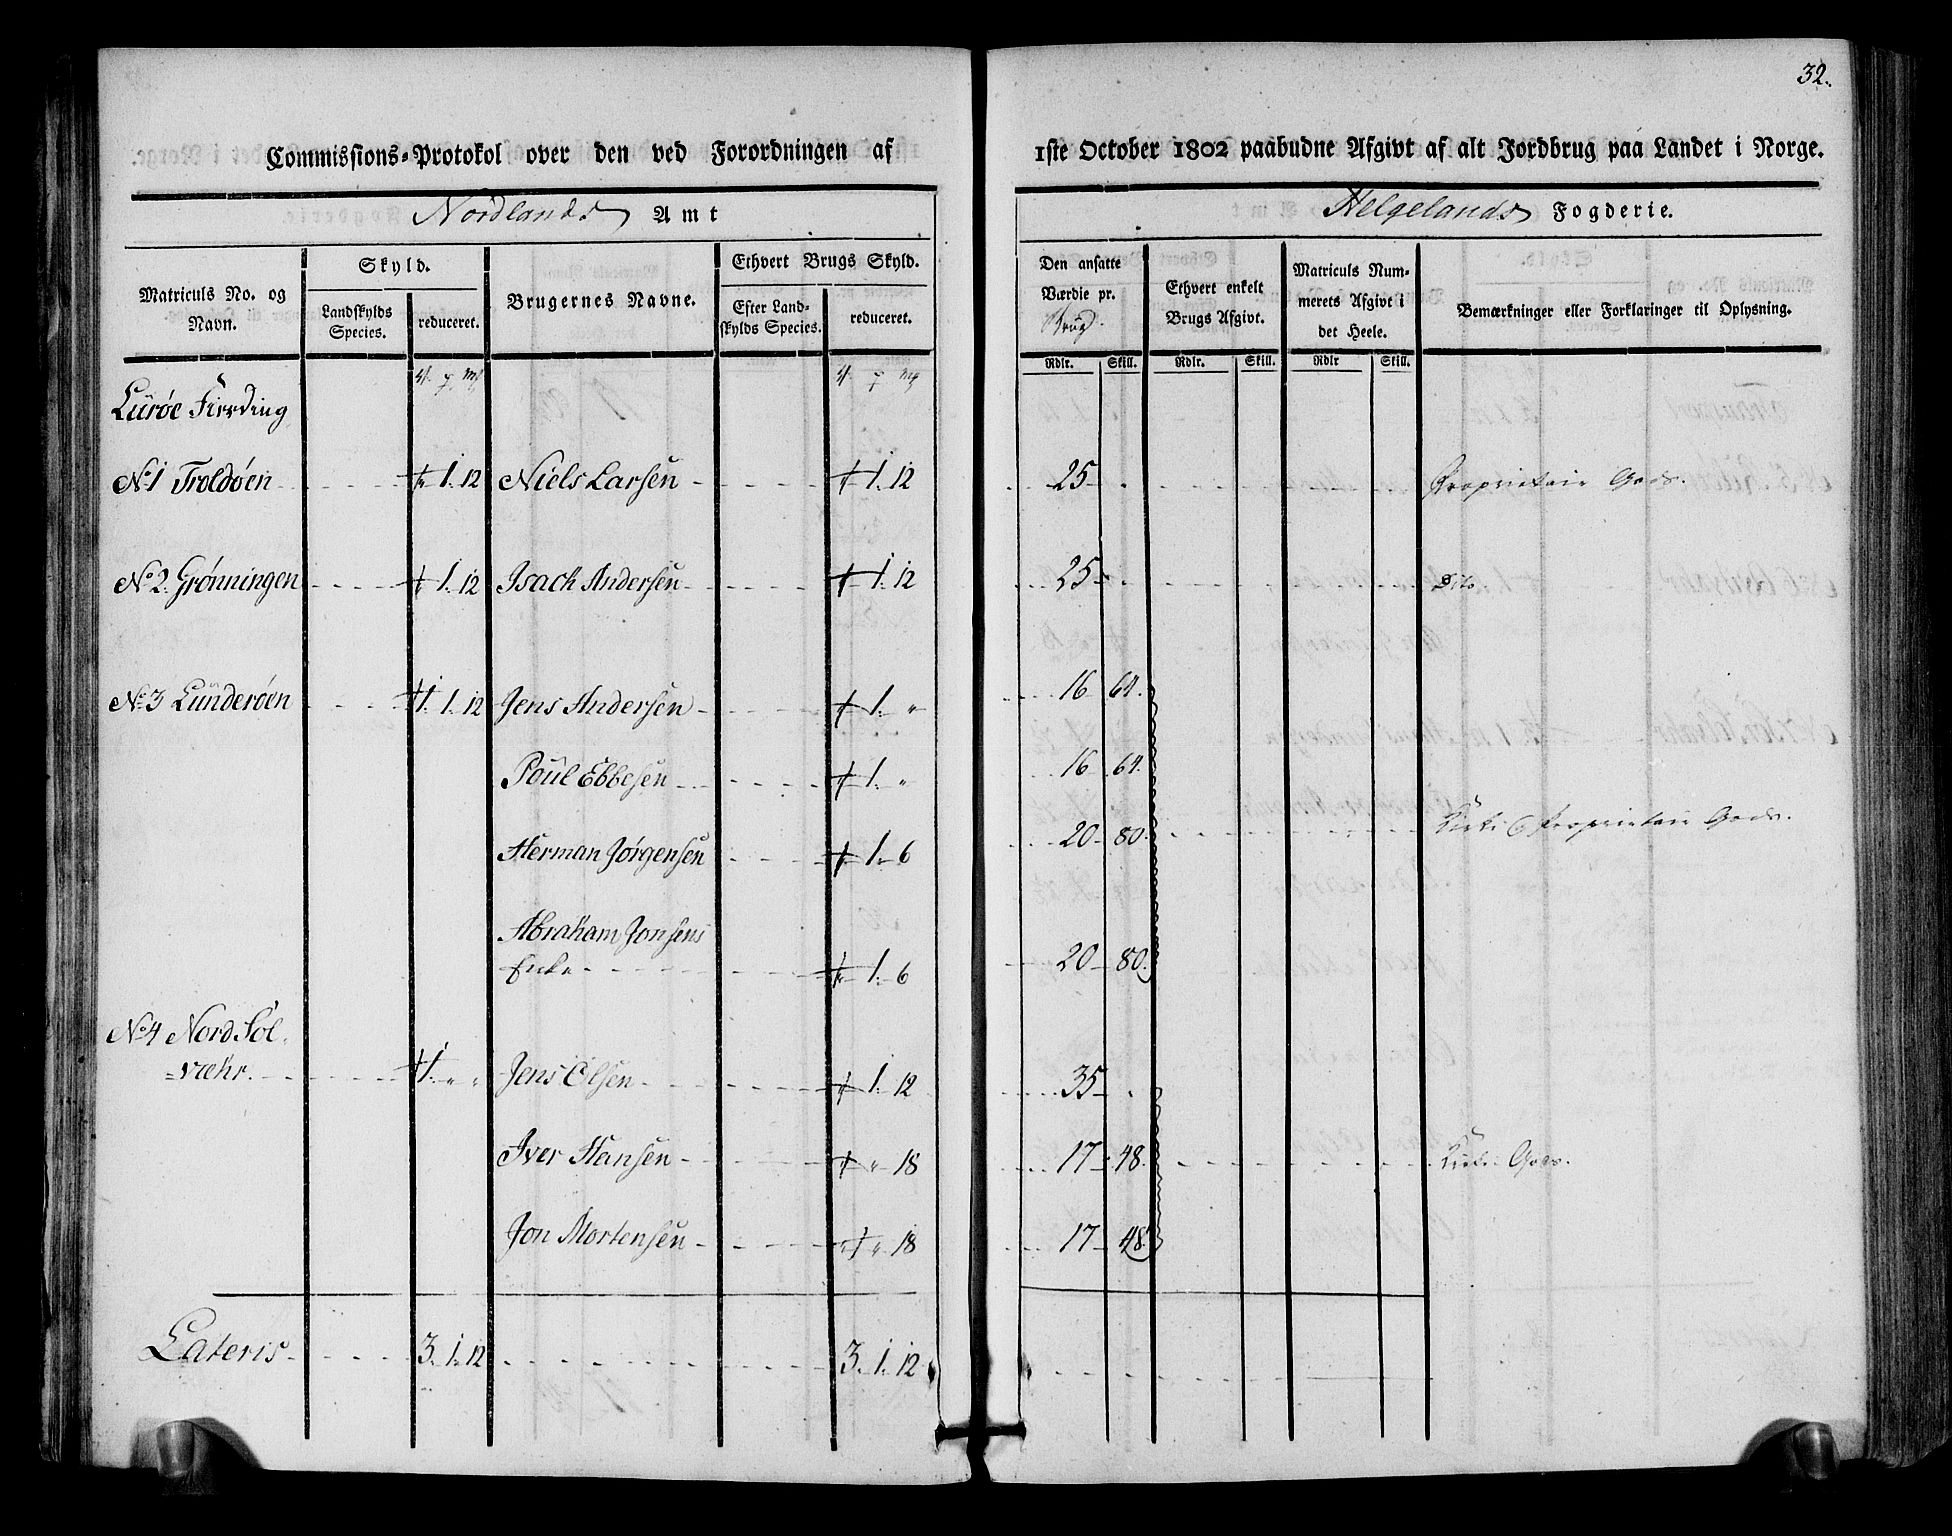 32.
Commissions-Protokol over den ved Forordningen af 1ste October 1802 paabudne Afgivt af alt Jordbrug paa Landet i Norge.
Nordlands Amt Helgelands Fogderie.
Matriculs No. og Navn.
Skyld.
Landskylds Species.
reduceret.
Brugernes Navne.
Ethvert Brugs Skyld.
Efter Landskylds Species.
reduceret.
Den ansatte Værdie pr. Brug.
Ethvert enkelt Brugs Afgivt.
Matriculs Nummerets Afgivt i det Heele.
Bemærkninger eller Forklaringer til Oplysning.
Rdlr. Skill. Rdlr. Skill. Rdlr Skill.
Lurøe Fierding
No 1 Troldøen 1. 12 Niels Larsen 1. 12 25 Proprietair Gods.
No 2. Grønningen 1. 12 Isach Andersen 1. 12 25 Dito
No 3 Lunderøen 1. 1. 12 Jens Andersen 1. " 16 64.
Poul Ebbesen 1. " 16 64.
Herman Jørgensen 1. 6 20 80. Kirke & Proprietair Gods.
Abraham Jonsens
Enke 1. 6 20 80.
No 4 Nord Sol-
væhr. 1. " " Jens Olsen 1. 12 35
Iver Hansen " 18 17 48. Kirke Gods.
Jon Mortensen " 18 17 48.
Lateris 3. 1. 12 3. 1. 12